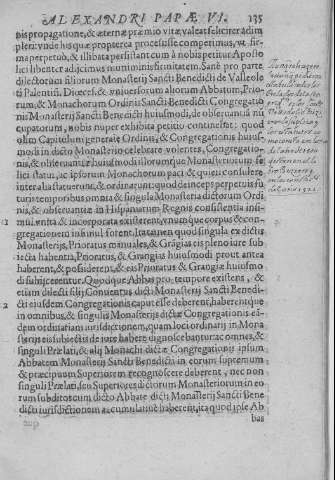 ALEXANDRI PAPÆ VI. 135
nis propagatione, & æternæ præmio vitæ valeat feliciter adim
pleri: vnde his quæ propterea processisse comperimus, vt fir-
ma perpetuò, & illibata persistant cum à nobis petitur Aposto
lici libenter adijcimus numinis firmitatem. Sanè pro parte
dilectorum filiorum Monasterij Sancti Benedicti de Valleole
ti Palentiñ. Diœces. & vniuersorum aliorum Abbatum, Prio-
rum, & Monachorum Ordinis Sancti Benedicti Congregatio
nis Monasterij Sancti Benedicti huiusmodi, de obseruantia nũ
cupatorum, nobis nuper exhibita petitio continebat: quod
olim Capitulum generale Ordinis, & Congregationis huius
modi in dicto Monasterio celebrare volentes, Congregatio-
nis, & obseruantiæ huiusmodi illorumque Monasteriorum fe-
lici statui, ac ipsorum Monachorum pact & quieti consulere
inter alia statuerunt, & ordinarunt: quod deinceps perpetuis fu
turis temporibus omnia & singula Monasteria dictorum Ordi
nis, & obseruantiæ in Hispaniarum Regnis consistentia insi-
mul vnita, & incorporata existerent, vnum que corpus & con-
gregationem insimul forent. Ita tamen quod singula ex dictis
Monasterijs, Prioratus manuales, & Grãgias eis pleno iure sub
iecta habentia, Prioratus, & Grangias huiusmodi prout antea
haberent, & possiderent, & eis Prioratus & Grangiæ huiusmo
di subijcerentur. Quodque Abbas pro tempore existens, &
etiam dilecti filij Conuentus dicti Monasterij Sancti Benedi-
cti eiusdem Congregationis caput esse deberent, haberentque
in omnibus, & singulis Monasterijs dictæ Congregationis eã-
dem ordinariam iurisdictionem, quam loci ordinarij in Mona
sterijs eis subiectis de iure habere dignoscebantur ac omnes, &
singuli Prælati, & alij Monachi dictæ Congregationis ipsum
Abbatem Monasterij Sancti Benedicti in eorum supremum
& præcipuum Superiorem recognoscere deberent, nec non
singuli Prælati, seu Superiores dictorum Monasteriorum in eo
rum subditos cum dicto Abbate dicti Monasterij Sancti Bene
dicti iurisdictionem accumulatiuè haberent, ita quod ipse Ab
bas
1
2